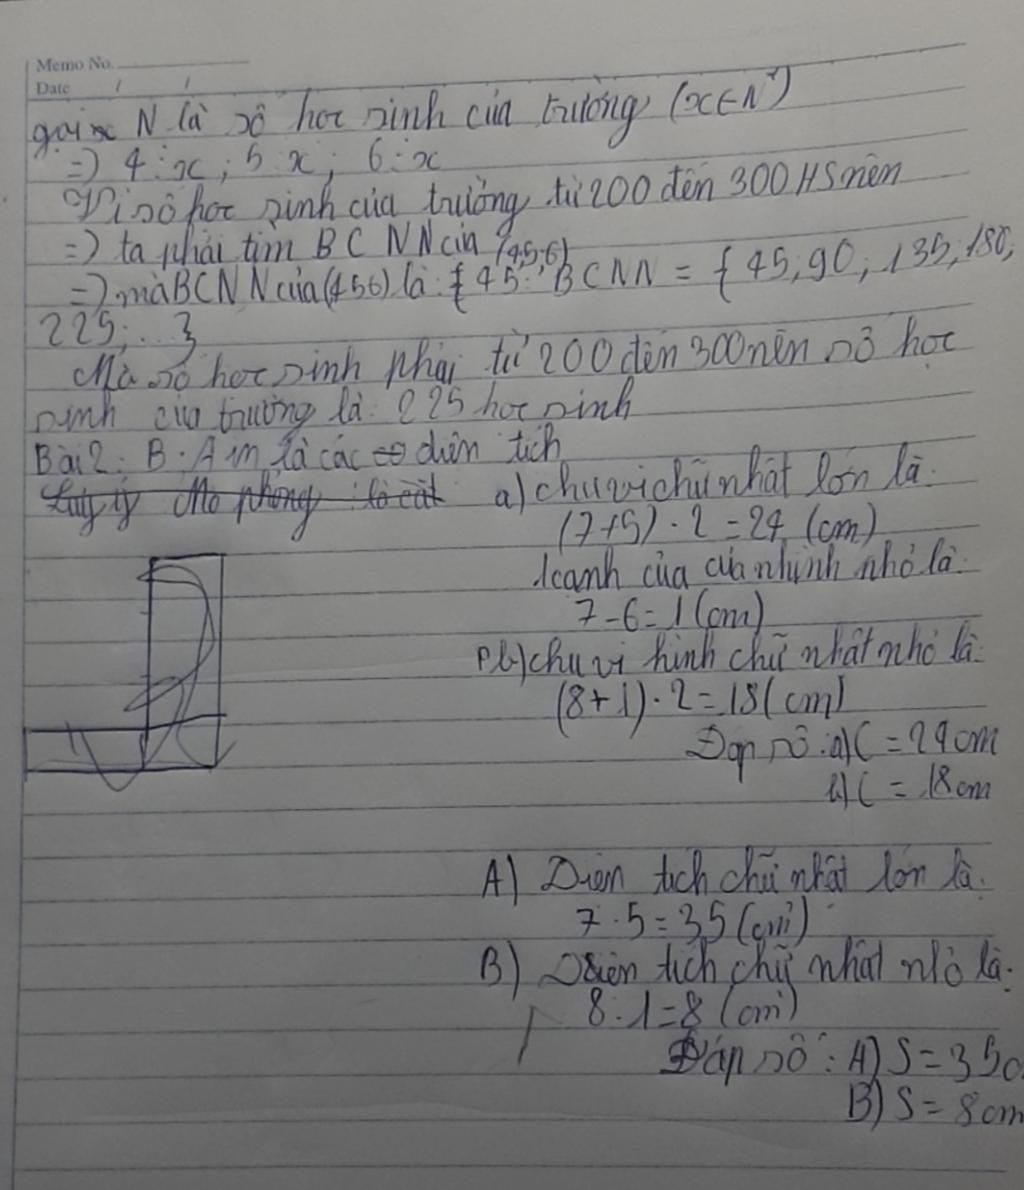 Memo No.
Date / /
gọi x N là số học sinh của trường (x∈N*)
=) 4:x ; 5:x ; 6:x
Vì số học sinh của trường từ 200 đến 300 HS nên
=) ta phải tìm BCNN của (4,5,6)
=) mà BCNN của (456) là: { 45: BCNN = { 45, 90, 135, 180,
225; ... }
Mà số học sinh phải từ 200 đến 300 nên số học
sinh của trường là: 225 học sinh
Bài 2: B. A m là các diên tích
a) chu vi chữ nhật lớn là:
(7+5) . 2 = 24 (cm)
1 canh của của nhình nhỏ là:
7-6=1 (cm)
b) chu vi hình chữ nhật nhỏ là:
(8+1) . 2 = 18 (cm)
Đap số: a) C = 24 cm
b) C = 18 cm
A) Diên tích chữ nhật lớn là:
7 . 5 = 35 (cm²)
B) Diên tích chữ nhât nhỏ là:
8 . 1 = 8 (cm²)
Đáp số: A) S = 35c
B) S = 8 cm